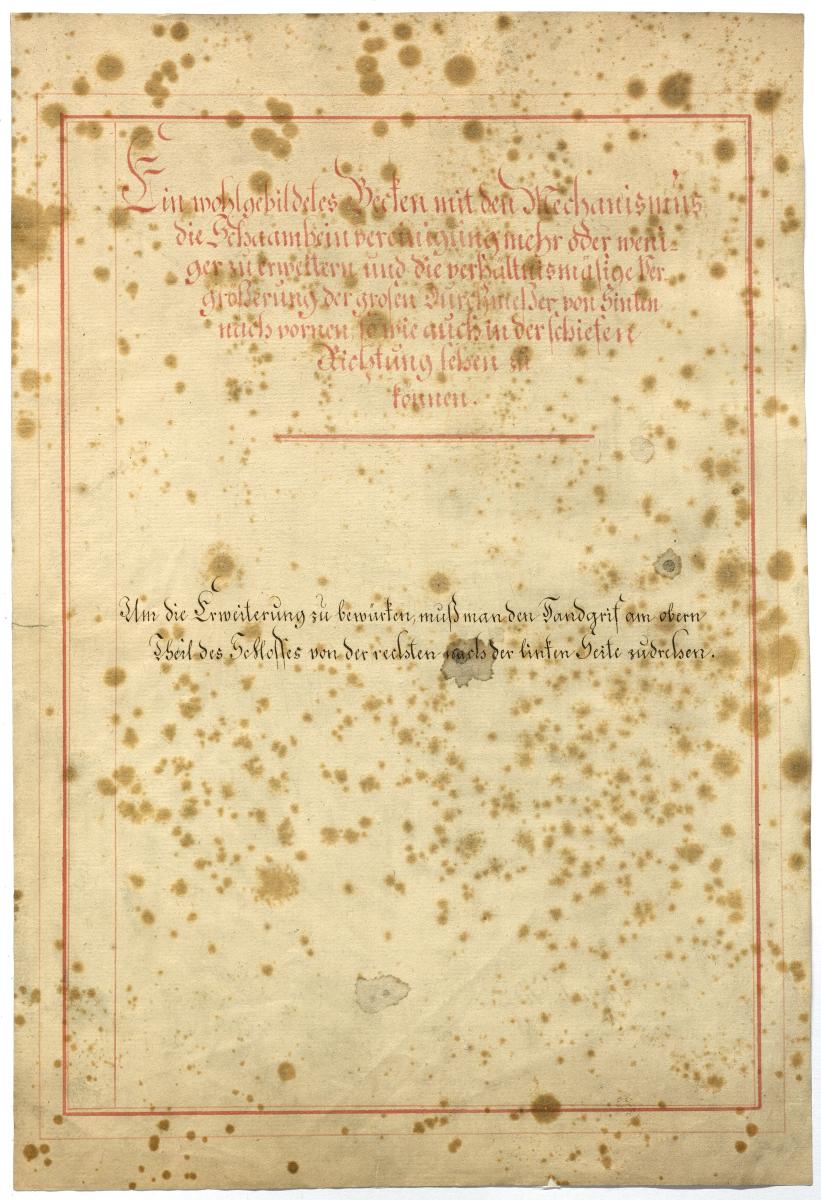 Ein wohlgebildetes Becken mit den Mechanismus
die Schaambein vereinigung mehr oder weni-
ger zu erweitern und die verhältnismäsige Ver-
größerung der grosen Durchmeßer von hinten
nach vornen, so wie auch in der schiefen
Richtung sehen zu
können.
Um die Erweiterung zu bewürken, muß man den Handgrif am obern
Theil des Schlosses von der rechten nach der linken Seite zudrehen.